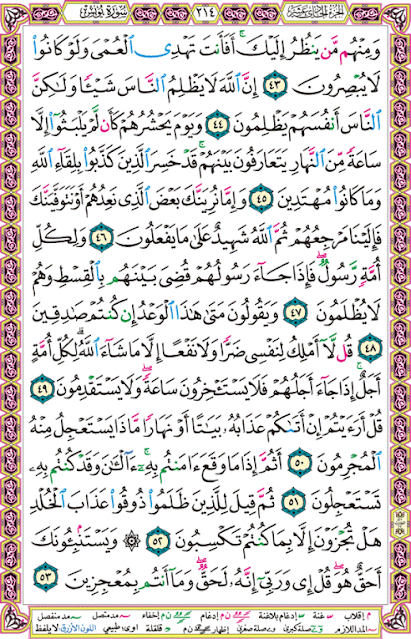 الجزء الحادى عشر ٢١٤ سورة يونس
وَمِنْهُم مَّن يَنظُرُ إِلَيْكَ ۚ أَفَأَنتَ تَهْدِى الْعُمْىَ وَلَوْ كَانُوا
لَا يُبْصِرُونَ ٤٣ إِنَّ اللَّهَ لَا يَظْلِمُ النَّاسَ شَيْـًٔا وَلَٰكِنَّ
النَّاسَ أَنفُسَهُمْ يَظْلِمُونَ ٤٤ وَيَوْمَ يَحْشُرُهُمْ كَأَن لَّمْ يَلْبَثُوٓا إِلَّا
سَاعَةً مِّنَ النَّهَارِ يَتَعَارَفُونَ بَيْنَهُمْ ۚ قَدْ خَسِرَ الَّذِينَ كَذَّبُوا بِلِقَآءِ اللَّهِ
وَمَا كَانُوا مُهْتَدِينَ ٤٥ وَإِمَّا نُرِيَنَّكَ بَعْضَ الَّذِى نَعِدُهُمْ أَوْ نَتَوَفَّيَنَّكَ
فَإِلَيْنَا مَرْجِعُهُمْ ثُمَّ اللَّهُ شَهِيدٌ عَلَىٰ مَا يَفْعَلُونَ ٤٦ وَلِكُلِّ
أُمَّةٍ رَّسُولٌ ۖ فَإِذَا جَآءَ رَسُولُهُمْ قُضِىَ بَيْنَهُم بِالْقِسْطِ وَهُمْ
لَا يُظْلَمُونَ ٤٧ وَيَقُولُونَ مَتَىٰ هَٰذَا الْوَعْدُ إِن كُنتُمْ صَٰدِقِينَ
٤٨ قُل لَّآ أَمْلِكُ لِنَفْسِى ضَرًّا وَلَا نَفْعًا إِلَّا مَا شَآءَ اللَّهُ ۗ لِكُلِّ أُمَّةٍ
أَجَلٌ ۚ إِذَا جَآءَ أَجَلُهُمْ فَلَا يَسْتَـْٔخِرُونَ سَاعَةً ۖ وَلَا يَسْتَقْدِمُونَ ٤٩
قُلْ أَرَءَيْتُمْ إِنْ أَتَىٰكُمْ عَذَابُهُۥ بَيَٰتًا أَوْ نَهَارًا مَّاذَا يَسْتَعْجِلُ مِنْهُ
الْمُجْرِمُونَ ٥٠ أَثُمَّ إِذَا مَا وَقَعَ ءَامَنتُم بِهِۦٓ ۚ ءَآلْـَٰٔنَ وَقَدْ كُنتُم بِهِۦ
تَسْتَعْجِلُونَ ٥١ ثُمَّ قِيلَ لِلَّذِينَ ظَلَمُوا ذُوقُوا عَذَابَ الْخُلْدِ
هَلْ تُجْزَوْنَ إِلَّا بِمَا كُنتُمْ تَكْسِبُونَ ٥٢ ۞ وَيَسْتَنۢبِـُٔونَكَ
أَحَقٌّ هُوَ ۖ قُلْ إِى وَرَبِّىٓ إِنَّهُۥ لَحَقٌّ ۖ وَمَآ أَنتُم بِمُعْجِزِينَ ٥٣